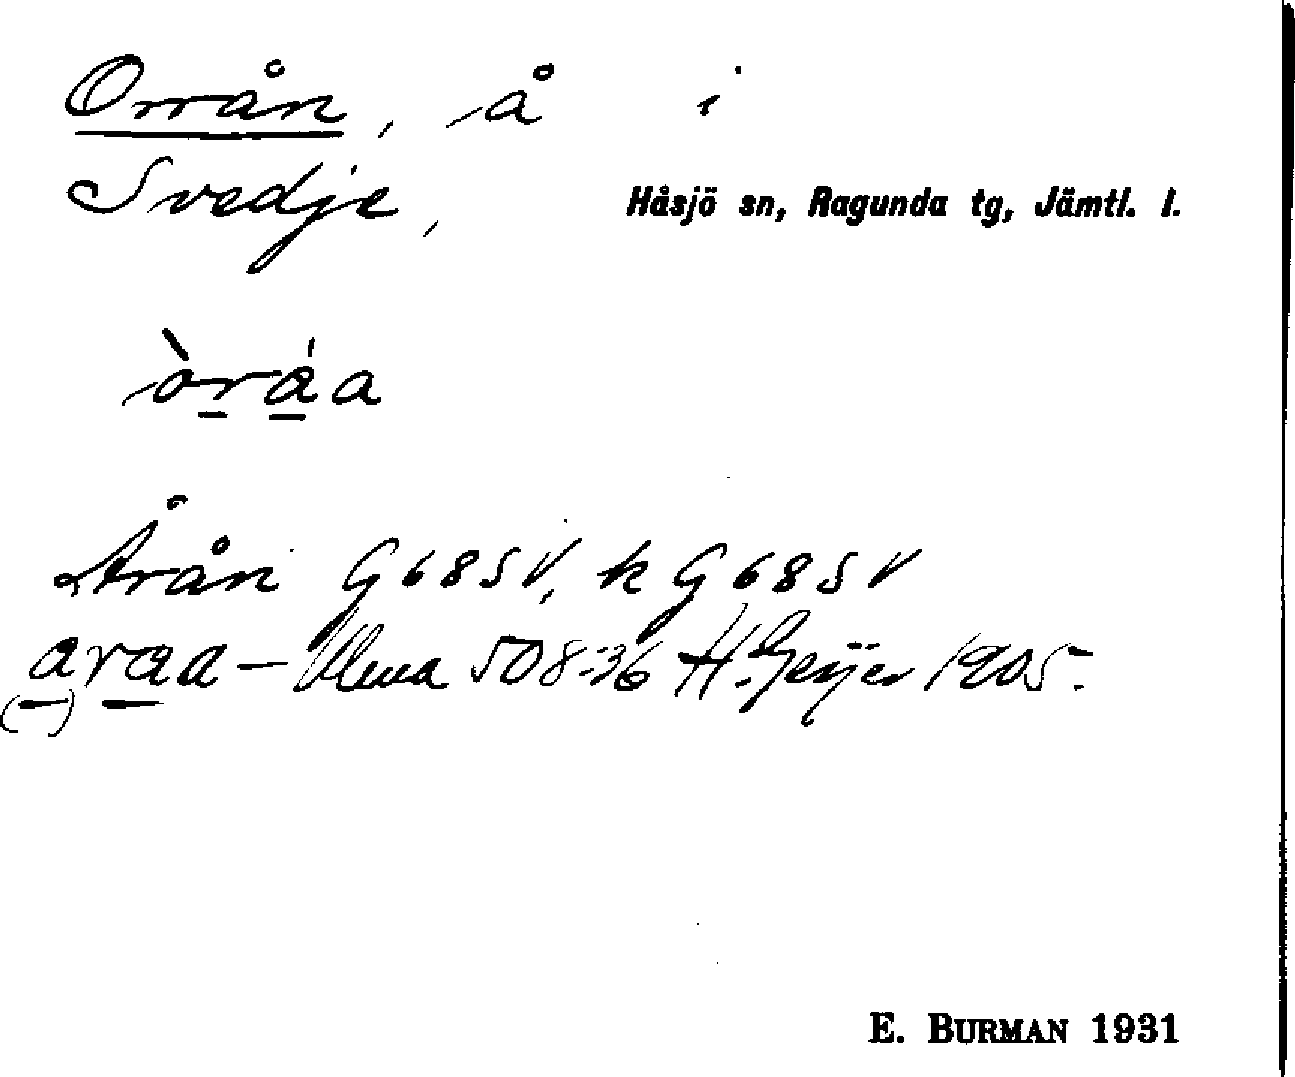 Orrån, å i
Svedje, Håsjö sn, Ragunda tg, Jämtl. l.
òráa
Årån G68SV, k G68SV
araa — Ulma 508:36 H. Geijer 1905.
(—)
E. BURMAN 1931